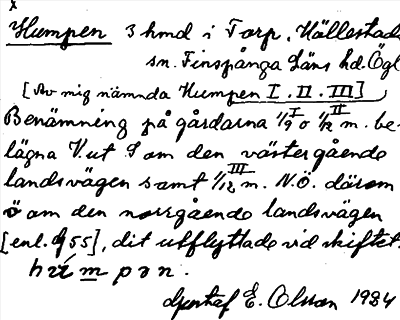 x
Humpen 3 hmd i Torp, Hällestads
sn. Finspånga Läns hd. Ögl
[Av mig nämnda Humpen I. II. III]
Benämning på gårdarna 1/9 I o 1/12 II m. be-
lägna V. ut S om den västergående
landsvägen samt 1/12 III m. N.Ö. därom
ö om den norrgående landsvägen
[enl. 55], dit utflyttade vid skiftet.
Gustaf E. Olsson 1984